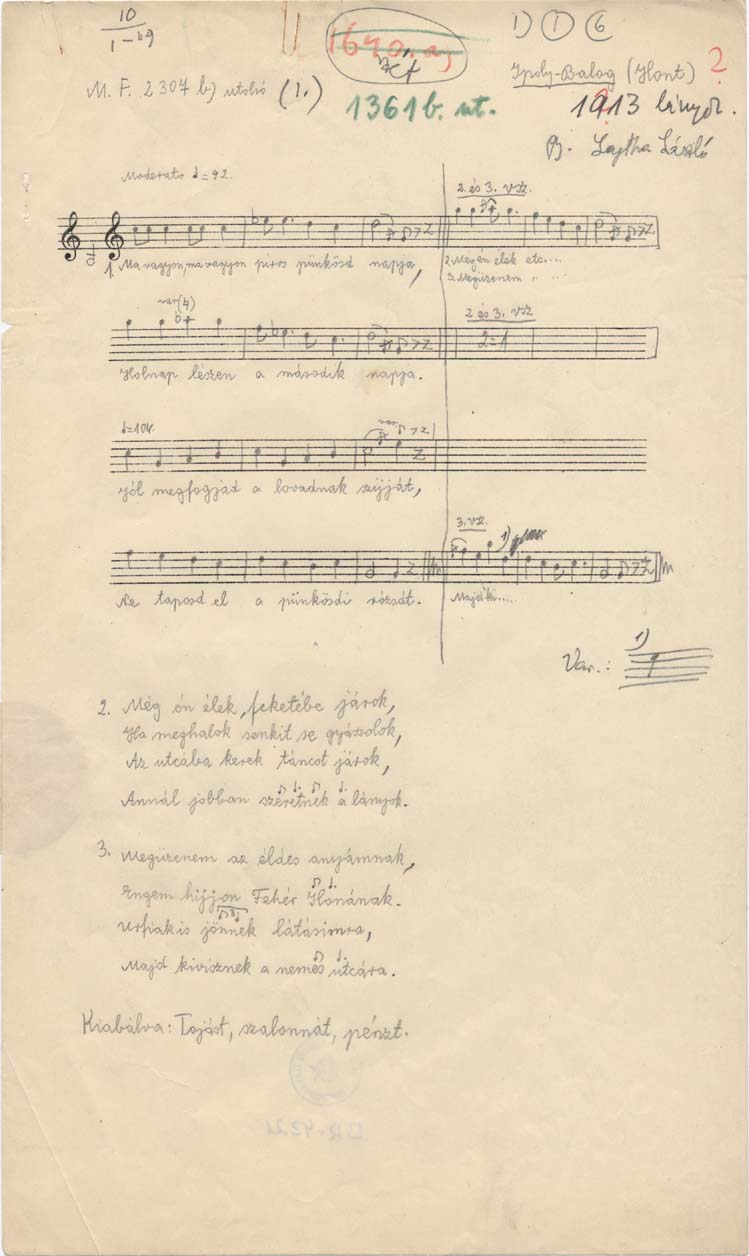 10
I-69
1670. a)
1) 1 6
M. F. 2307 b) utolsó (1.)
1361 b. ut.
Ipoly-Balog (Hont) ?
1913 lányok.
Gy. Lajtha László
Moderato ♩=92.
2. és 3. vsz.
1. Ma vagyon, ma vagyon piros pünkösd napja,
2. Megén élek etc....
3. Megüzenem " ...
var (4)
2 és 3. vsz
2=1
Holnap lészen a második napja.
♩=104.
var.
Jól megfogjad a lovadnak szijját,
3. vsz.
1)
Ne taposd el a pünkösdi rózsát.
Majd ki.....
1)
Var.:
2. Még én élek, feketébe járok,
Ha meghalok senkit se gyászolok,
Az utcába kerek táncot járok,
Annál jobban szeretnek a lányok.
3. Megüzenem az éldes anyámnak,
Engem hijjon Fehér Ilonának.
Urfiak is jönnek látásimra,
Majd kivisznek a nemes utcára.
Kiabálva: Tojást, szalonnát, pénzt.